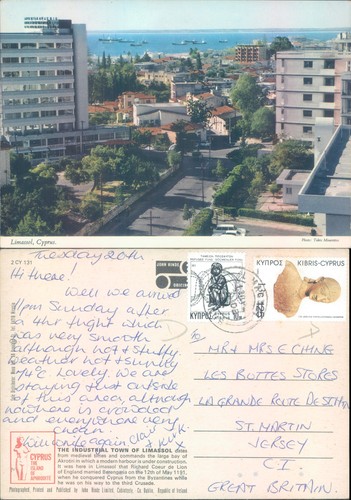 Limassol, Cyprus.
Photo: Takis Maratitis
2 CY 121
Tuesday 20th
Hi there!
Well we arrived
11pm Sunday after
a 4hr flight which
was very smooth
although hot & stuffy
weather hot & sunny
Lovely. We are
staying just outside
of this area, although
nowhere is crowded
and everywhere very
clean
Will write again
JOHN HINDE
ΚΥΠΡΟΣ
KIBRIS·CYPRUS
To
MR & MRS E CHING
LES BUTTES STORES
LA GRANDE ROUTE DE ST JN
ST. MARTIN
JERSEY
I
GREAT BRITAIN.
CYPRUS
THE ISLAND
OF APHRODITE
THE INDUSTRIAL TOWN OF LIMASSOL dates
from medieval times and commands the large bay of
Akrotiri in which a modern harbour is under construction.
It was here in Limassol that Richard Coeur de Lion
of England married Berengaria on the 12th of May 1191,
when he conquered Cyprus from the Byzantines while
he was on his way to the third Crusade.
Photographed, Printed and Published by John Hinde Limited, Cabinteely, Co. Dublin, Republic of Ireland